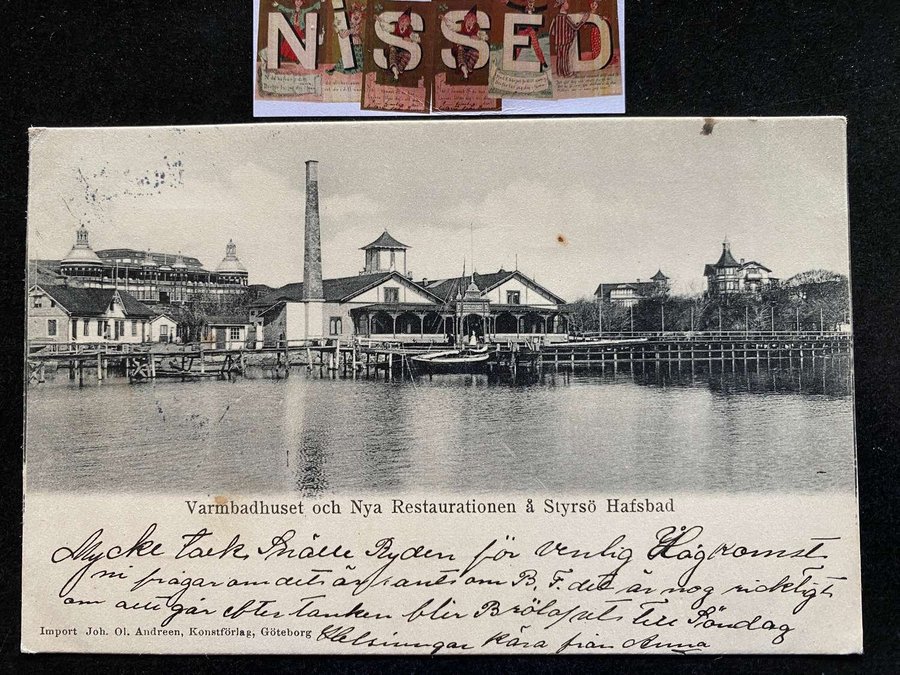 NiSSED
Varmbadhuset och Nya Restaurationen å Styrsö Hafsbad
Mycke tack Snälle Ryden för venlig Hågkomst
ni frågar om det är sant om B. F. det är nog ricktigt
om allt går efter tanken blir Brölopet till Söndag
Import Joh. Ol. Andreen, Konstförlag, Göteborg
Helsningar kära från Anna